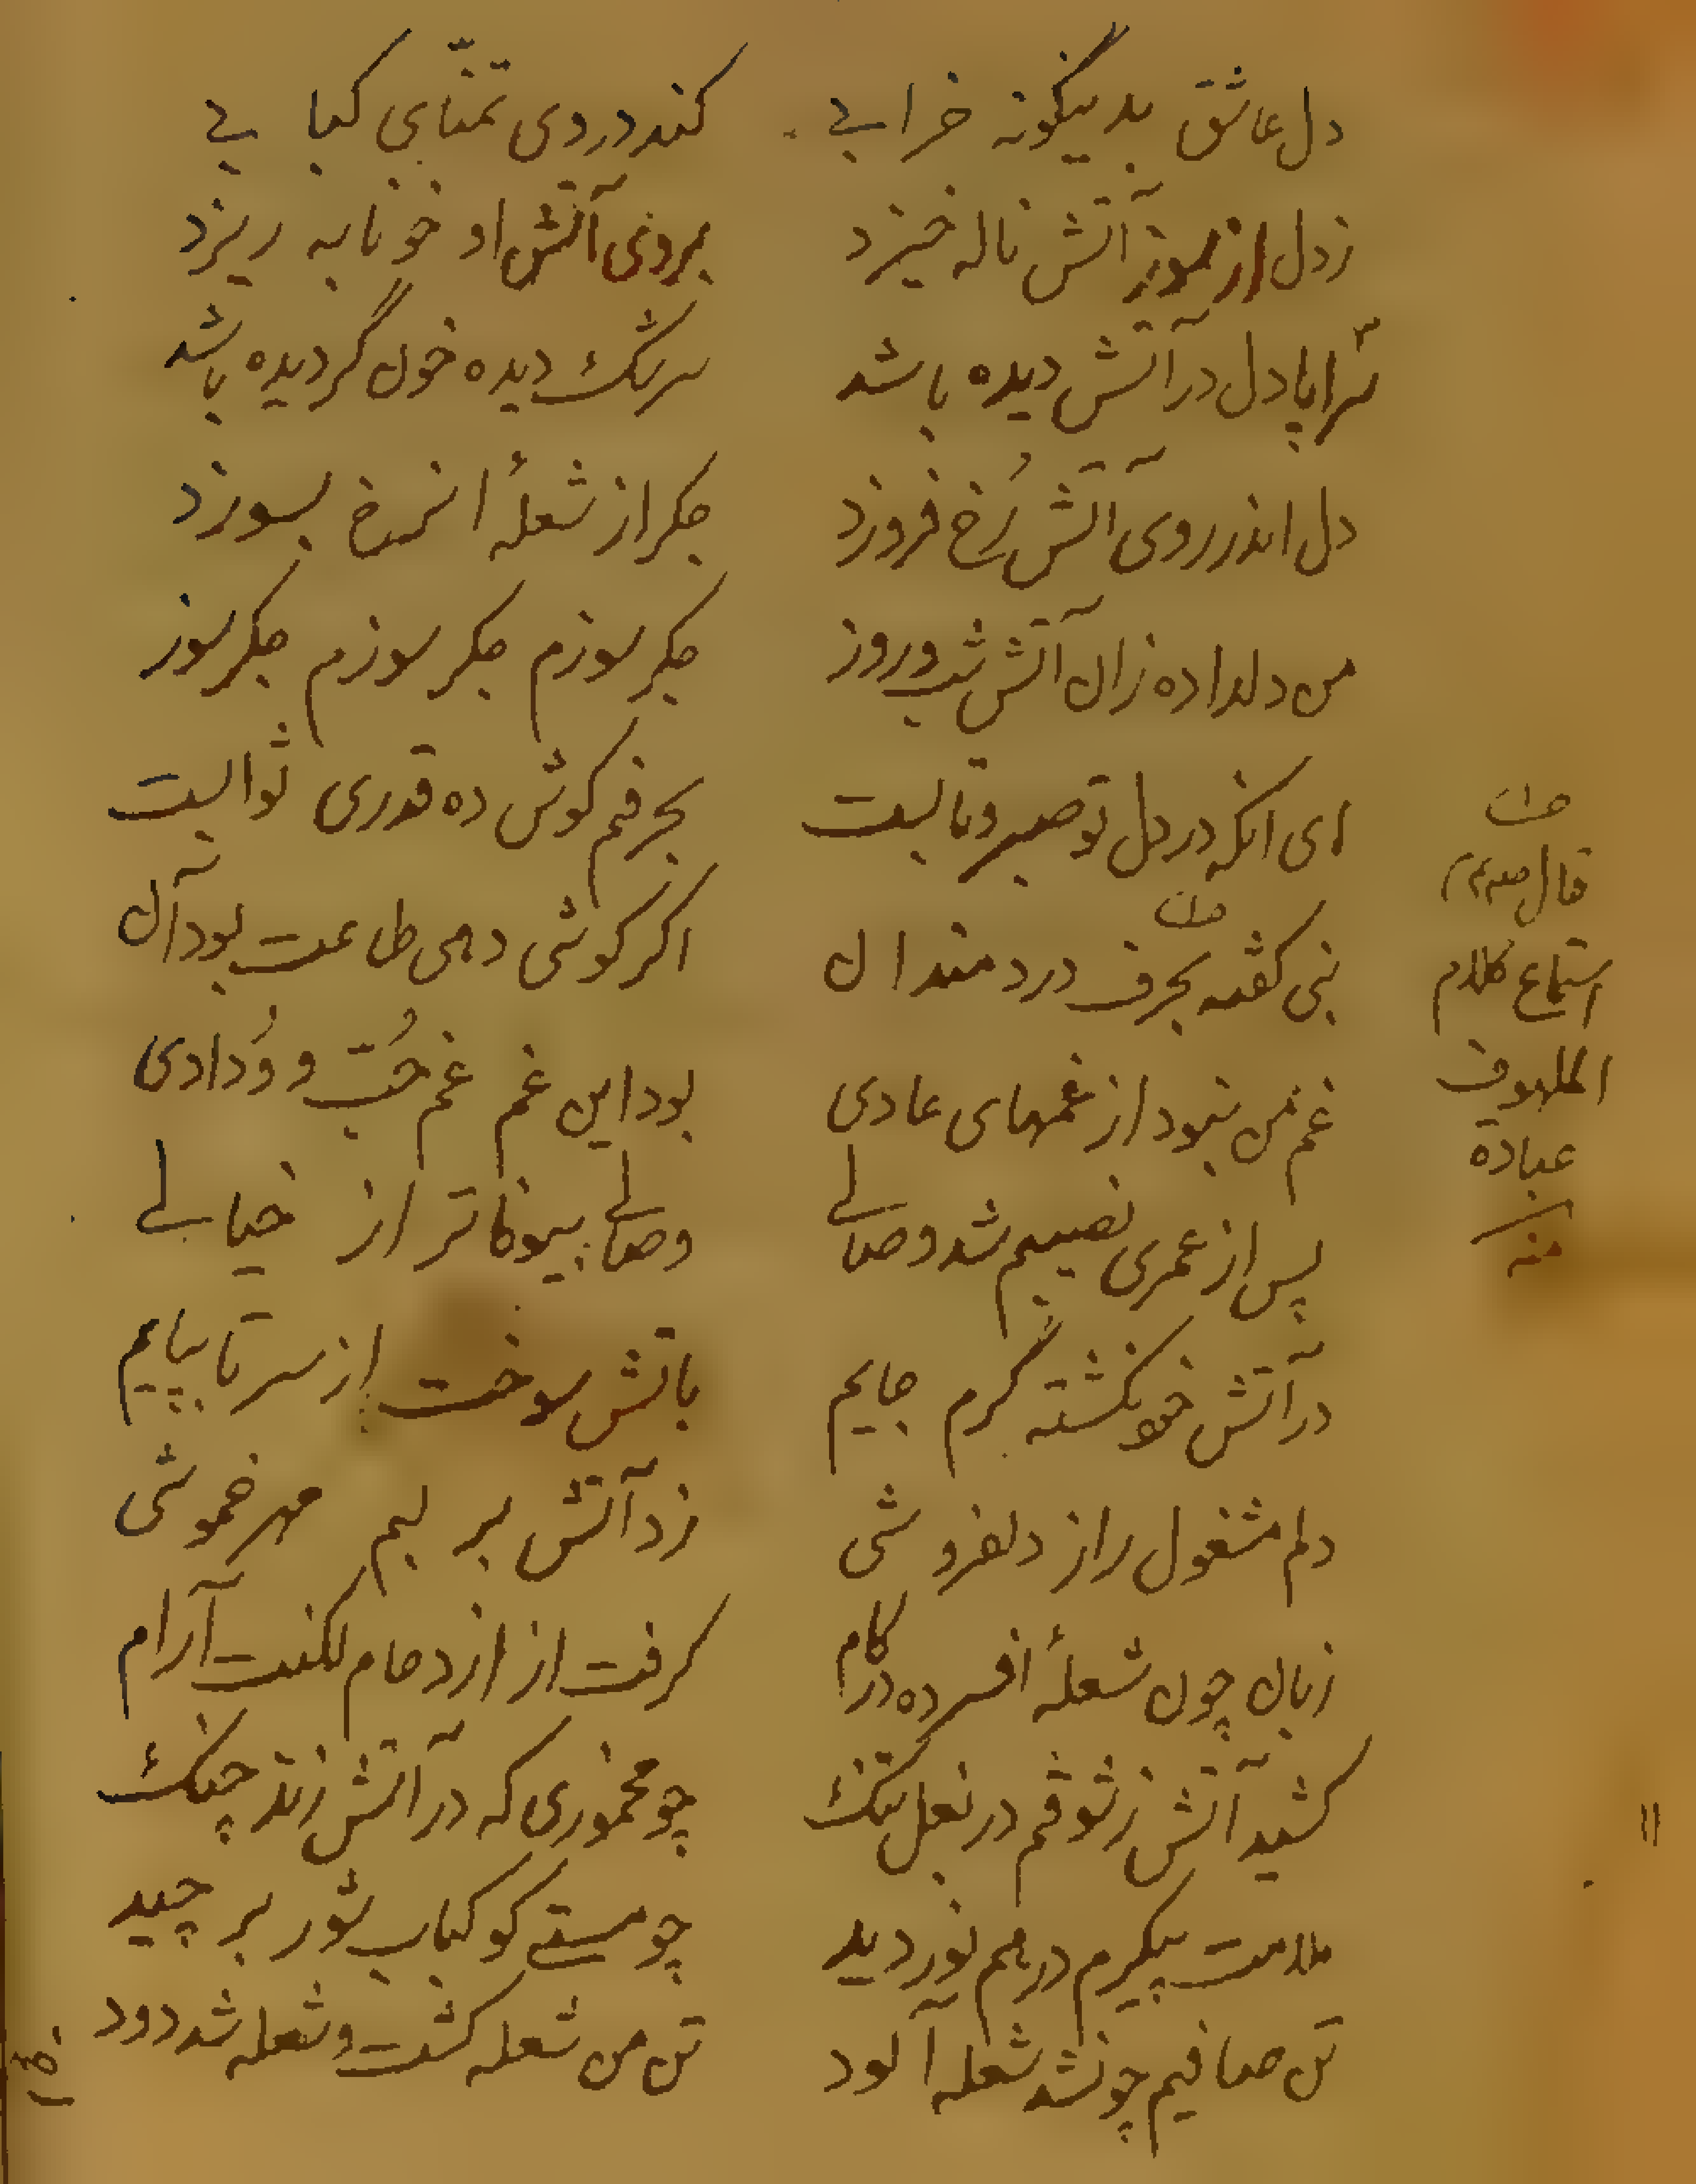 دل عاشق بدینگونه خرابی
کند در وی تمنّای کبابی
ز دل از سوز آتش ناله خیزد
بروی آتش او خونابه ریزد
سراپا دل در آتش دیده باشد
سرشک دیده خون گردیده باشد
دل اندر روی آتش رُخ فروزد
جکر از شعلهٔ بسوزد
من دلداده زان آتش شب و روز
جکر سوزم جکر سوزم جکر سوز
ای انکه در دل تو صبر و تابست
بحرفم کوش ده قدری ثوابست
نبی کفته بحرف دردمندان
اکر کوشی دهی طاعت بود آن
غم من نبود از غمهای عادی
بود این غم غم حُبّ و وُدادی
پس از عمری نصیبم شد وصالی
وصالی بیوفاتر از خیالی
در آتش خونکشته کرم جایم
باتش سوخت از سر تا بپایم
دلم مشغول راز دلفروشی
زد آتش بر لبم مهر خموشی
زبان چون شعلهٔ افسرده در کام
کرفت از ازدحام لکنت آرام
کشید آتش ز شوقم در بغل تنک
چو مخموری که در آتش زند چنک
ملامت پیکرم درهم نوردید
چو مستی کو کباب شور بر چید
تن صافیم چونشد شعله آلود
تن من شعله کشت و شعله شد دود
قال
استماع کلام
الملهوف
عبادة
منه
۱۱